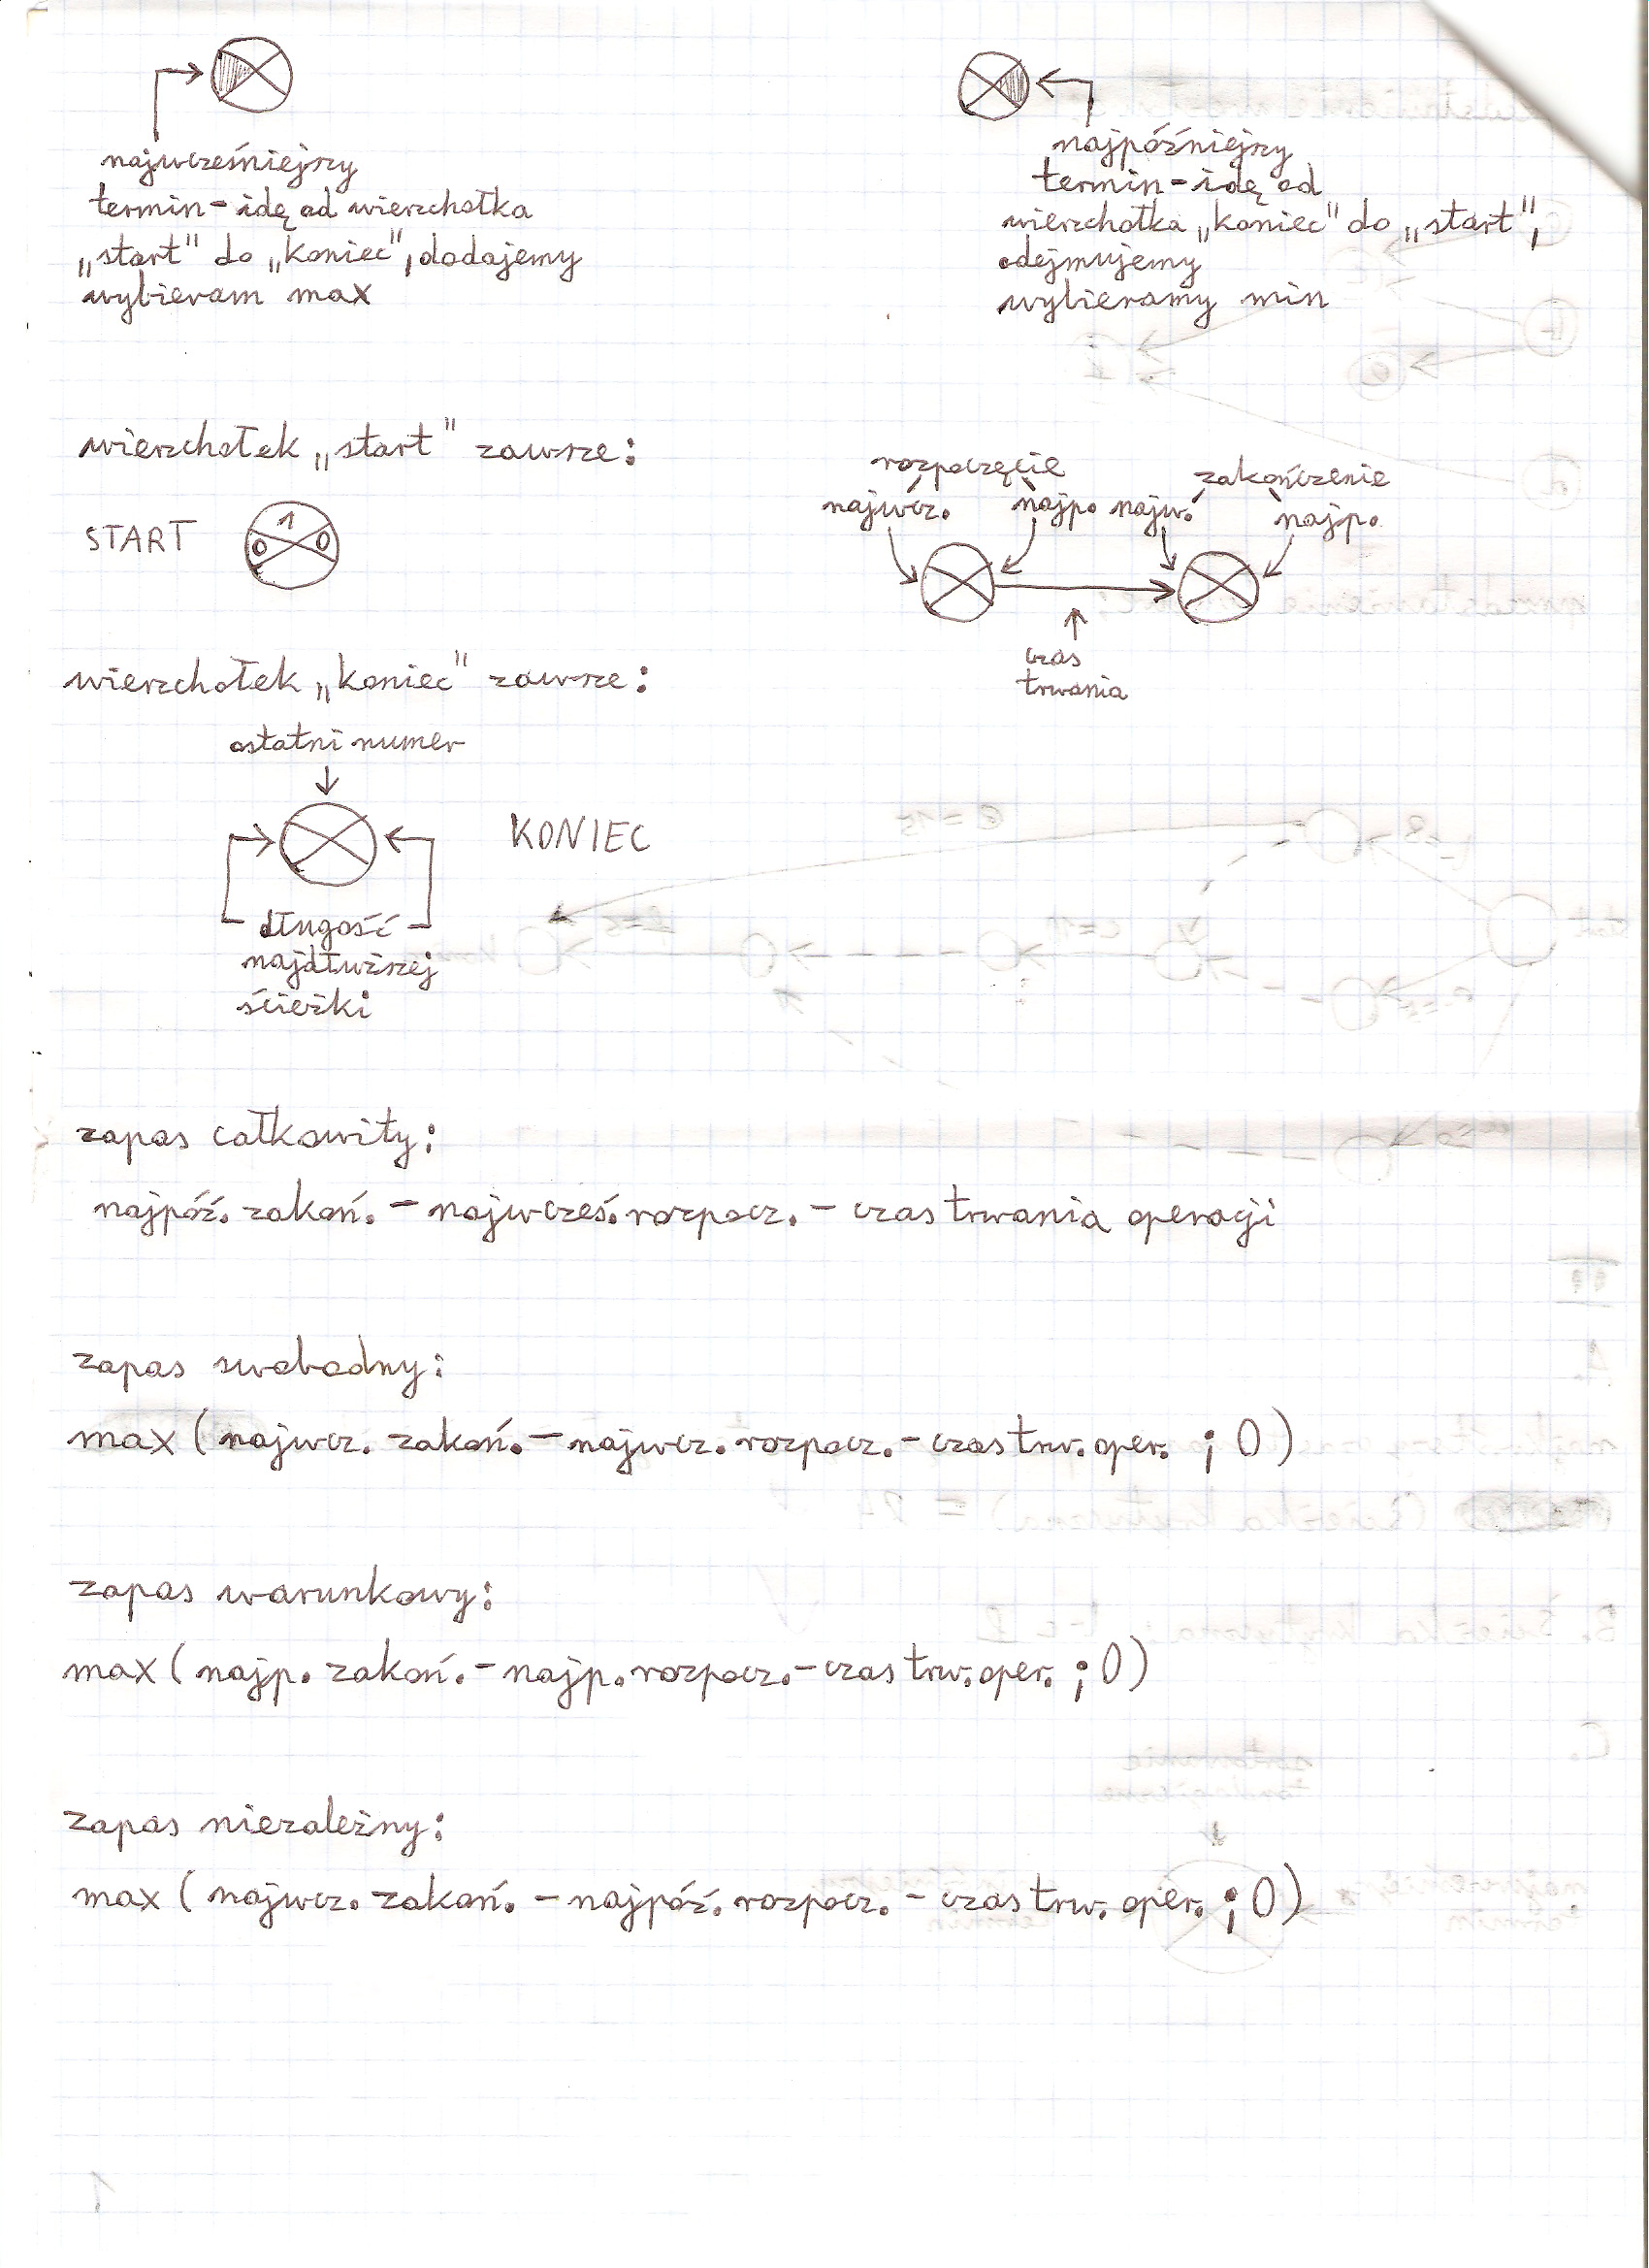 najwcześniejszy
termin - idę od wierzchołka
„start" do „koniec", dodajemy
wybieram max
najpóźniejszy
termin - idę od
wierzchołka „koniec" do „start",
odejmujemy
wybieramy min
wierzchołek „start" zawsze:
START
1
0 0
rozpoczęcie zakończenie
najwcz. najp. najw. najp.
czas
trwania
wierzchołek „koniec" zawsze:
ostatni numer
KONIEC
długość
najdłuższej
ścieżki
zapas całkowity:
najpóź. zakoń. - najwcześ. rozpocz. - czas trwania operacji
zapas swobodny:
max (najwcz. zakoń. - najwcz. rozpocz. - czas trw. oper. ; 0)
zapas warunkowy:
max (najp. zakoń. - najp. rozpocz. - czas trw. oper. ; 0)
zapas niezależny:
max (najwcz. zakoń. - najpóź. rozpocz. - czas trw. oper. ; 0)